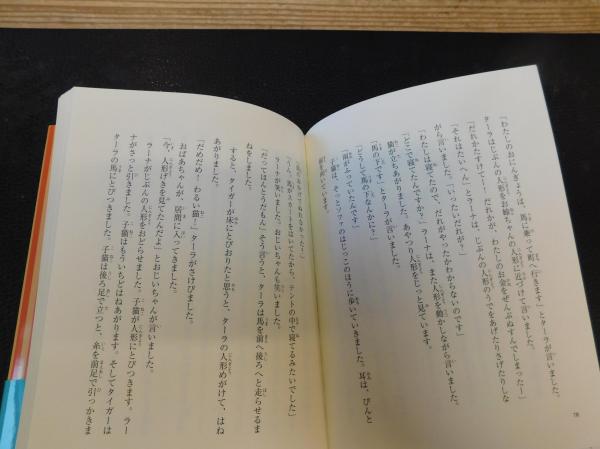 「わたしのおにんぎょうは、馬に乗って町へ行きます」とターラが言いました。
ターラはじぶんの人形をお姉ちゃんの人形に近づけて言いました。
「だれかたすけてー！ だれかが、わたしのお金をぜんぶぬすんでしまったー」
「それはたいへん」とラーナは、じぶんの人形のうでをあげたりさげたりしな
がら言いました。「いったいだれが？」
「わたしは寝てたので、だれがやったかわからないのです」
「どこで寝てたんですか？」ラーナは、また人形を動かしながら言いました。
猫が立ちあがりました。あやつり人形をじっと見ています。
「馬の下です」とターラが言いました。
「どうして馬の下なんかに？」
「雨がふっていたんです」
子猫は、そっとソファのはじっこのほうに歩いていきました。耳は、ぴんと
前をむいています。
78
「馬のおかげでぬれなかったー」
「うん、馬がスカートをはいてたから、テントの中で寝てるみたいでした」
ラーナが笑いました。おじいちゃんも笑いました。
「だってほんとうだもん」そう言うと、ターラは馬を前へ後ろへと走らせるま
ねをしました。
すると、タイガーが床にとびおりたと思うと、ターラの人形めがけて、はね
あがりました。
「だめだめ！ わるい猫！」ターラがさけびました。
おばあちゃんが居間に入ってきました。
「今、人形げきを見てたんだよ」とおじいちゃんが言いました。
ラーナがじぶんの人形をおどらせました。子猫が人形にとびつきます。ラー
ナがさっと引きました。子猫はもういちどはねあがります。そしてタイガーは
ターラの馬にとびつきました。子猫は後ろ足で立つと、糸を前足で引っかきま